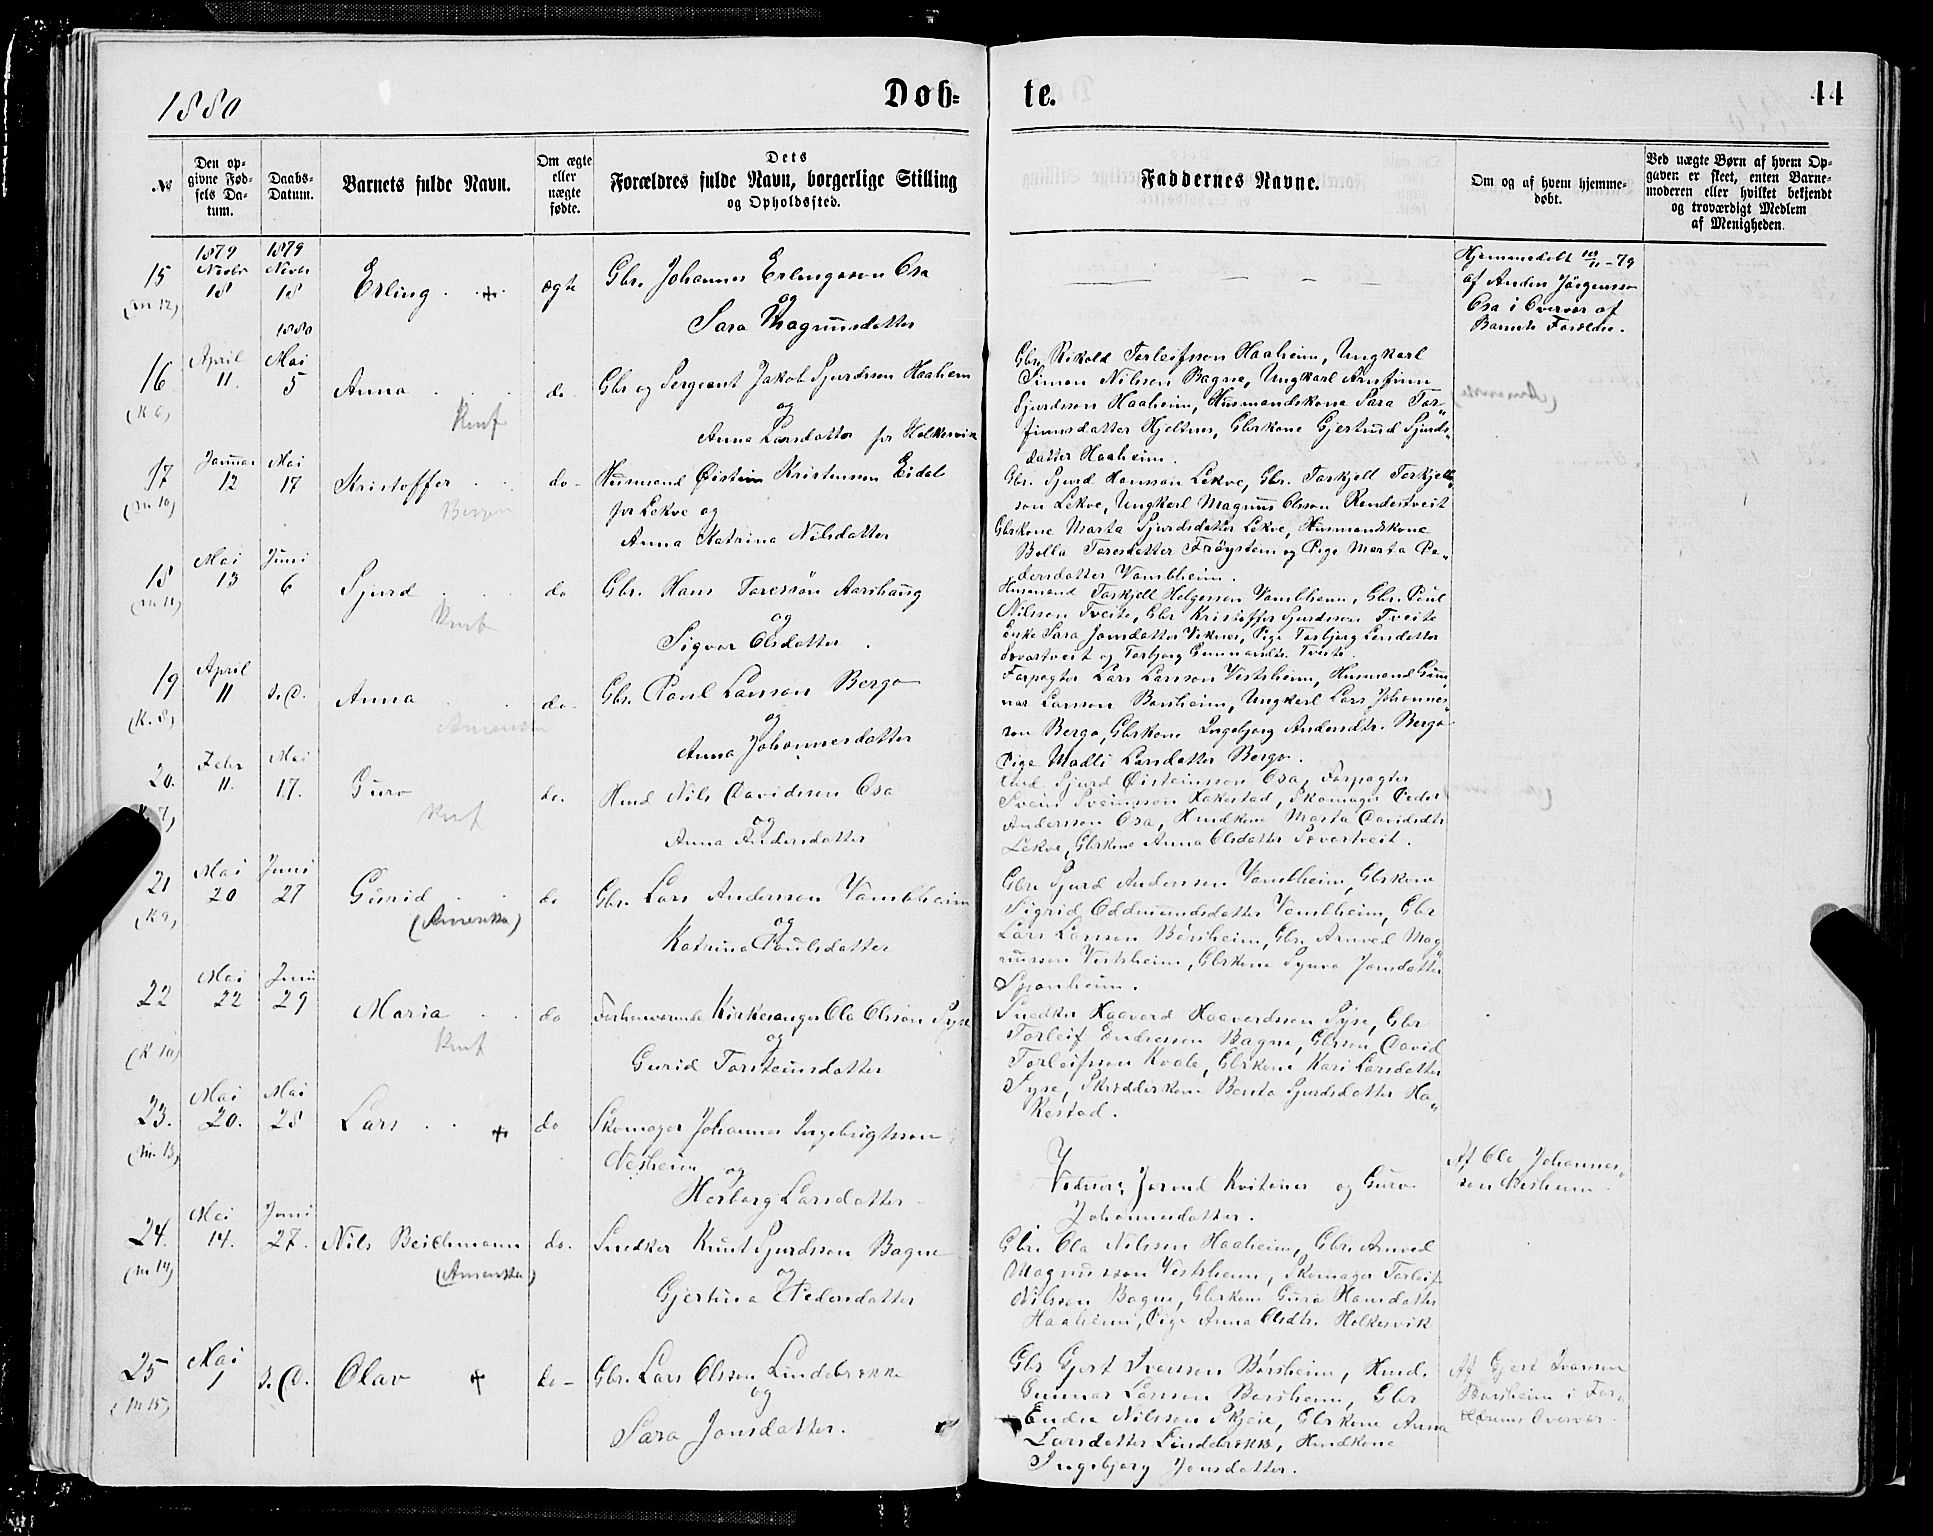 1880
Døb=
te.
44
№
Den op-
givne Fød-
sels Da-
tum.
Daabs-
Datum.
Barnets fulde Navn.
Om ægte
eller
uægte
fødte.
Dets
Forældres fulde Navn, borgerlige Stilling
og Opholdssted.
Faddernes Navne.
Om og af hvem hjemme-
døbt.
Ved uægte Børn af hvem Op-
gaven er skeet, enten Barne-
moderen eller hvilket bekjendt
og troværdigt Medlem
af Menigheden.
15
(M 12)
1879
Novbr
18
1879
Novbr
18
Erling +
ægte
Gbr. Johannes Erlingsson Osa
og
Sara Magnusdatter
Hjemmedøbt 18/11-79
af Anders Jørgensson
Osa i Overvær af
Barnets Forældre.
16
(K 6)
April
11
1880
Mai
5
Anna
do
Gbr og Sergeant Jakob Sjurdsson Haaheim
og
Anna Larsdatter for Holkesvik
Gbr. Rikold Torleifsson Haaheim, Ungkarl
Simon Nilssen Bagne, Ungkarl Arnfinn
Sjurdsson Haaheim, Husmandskona Sara Tor-
finnsdatter Hjeltnes, Gbrkone Gjertrud Sjurds-
datter Haaheim.
17
(M 10)
Januar
12
Mai
17
Kristoffer
Bergen
do
Husmand Øistein Kristensen Eidet
for Lekve og
Anna Katrina Nilsdatter
Gbr. Sjurd Hansson Lekve, Gbr. Torkjell Torkjells-
son Lekve, Ungkarl Magnus Olsson Rondestveit
Gbrkone Marta Sjurdsdatter Lekve, Husmandskone
Bolla Toresdatter Frøystein og Pige Marta Pe-
dersdatter Vambheim.
18
(M 11)
Mai
13
Juni
6
Sjurd
do
Gbr. Hans Toresson Aarhaug
og
Sigvor Olsdatter
Husmand Torkjell Helgesson Vambheim, Gbr. Poul
Nilsson Tveite, Gbr Kristoffer Sjurdsson Tveite
Enke Sara Jonsdatter Viknes, Pige Torbjørg Larsdatter
Svartveit og Torbjørg Gunnarsdtr. Tveite
19
(K. 8)
April
11
s. D.
Anna
Amerika
do
Gbr. Poul Larsson Bergo
og
Anna Johannesdatter
Forpagter Lars Larsson Vestrheim, Husmand Gun-
nar Larsson Børsheim, Ungkarl Lars Johannes-
son Bergo, Gbrkone Ingebjørg Andersdtr. Bergo
Pige Madli Larsdatter Bergo.
20.
7)
Febr
11.
Mai
17.
Guro
do.
Hmd Nils Davidsen Osa
og
Anna Andersdatter
Hmd. Sjurd Øisteinsson Osa, Forpagter
Svein Sveinsson Hakestad, Skomager Peder
Andersson Osa, Hmdkone Marta Davidsdtr
Lekve, Gbrkone Anna Olsdatter Svartveit.
21
(K 9)
Mai
20
Juni
27
Gurid
(Amerika)
do
Gbr. Lars Andersson Vambheim
og
Katrina Poulsdatter
Gbr Sjurd Andersson Vambheim, Gbrkone
Sigrid Oddmundsdatter Vambheim, Gbr
Lars Larsson Børsheim, Gbr. Arnved Mag-
nusson Vestrheim, Gbrkone Synva Jonsdatter
Spanheim.
22
(K 10)
Mai
22
Juni
29
Maria
do
Forhenværende Kirkesanger Ola Olsson Syse
og
Gurid Torsteinsdatter
Snedker Haavard Haavardsson Syse, Gbr
Torleif Endresson Bagne, Gbrsøn David
Torleifsson Kvale, Gbrkone Kari Larsdatter
Syse, Skredderkone Berita Sjurdsdatter Ha-
kestad.
23.
(M. 13)
Mai
20.
Mai
28
Lars +
do
Skomager Johannes Ingebrigtsson
Nesheim og
Herborg Larsdatter
Vidner: Jorend Kvitenes og Guro
Johannesdatter.
Af Ola Johannes-
son Nesheim
24.
(M 14)
Mai
14.
Juni
27.
Nils Beichmann
(Amerika)
do.
Snedker Knut Sjurdsson Bagne
og
Gjertina Pedersdatter
Gbr. Ola Nilsson Haaheim, Gbr. Arnved
Magnusson Vestrheim, Skomager Torleif
Nilsson Bagne, Gbrkone Guro Hansdatter
Haaheim, Pige Anna Olsdtr. Holkesvik
25
(M 15)
Mai
1
s. D.
Olav +
do
Gbr. Lars Olsson Lindebrekke
og
Sara Jonsdatter.
Gbr Gjert Ivarsson Børsheim, Hmd.
Gunnar Larsson Børsheim, Gbr
Endre Nilsson Skjeie, Gbrkone Anna
Larsdatter Lindebrekke, Hmdkone
Ingebjørg Jonsdatter.
Af Gjert Ivarsson
Børsheim i For-
ældrenes Overvær.